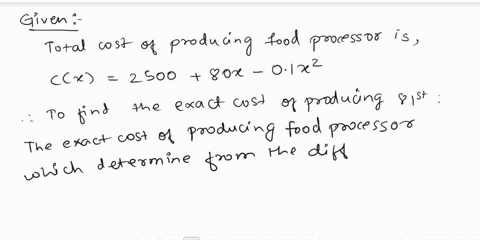 Given:-
Total cost of producing food processor is,
C(x) = 2500 + 80x - 0.1x²
∴ To find the exact cost of producing 81st :
The exact cost of producing food processor
which determine from the diff